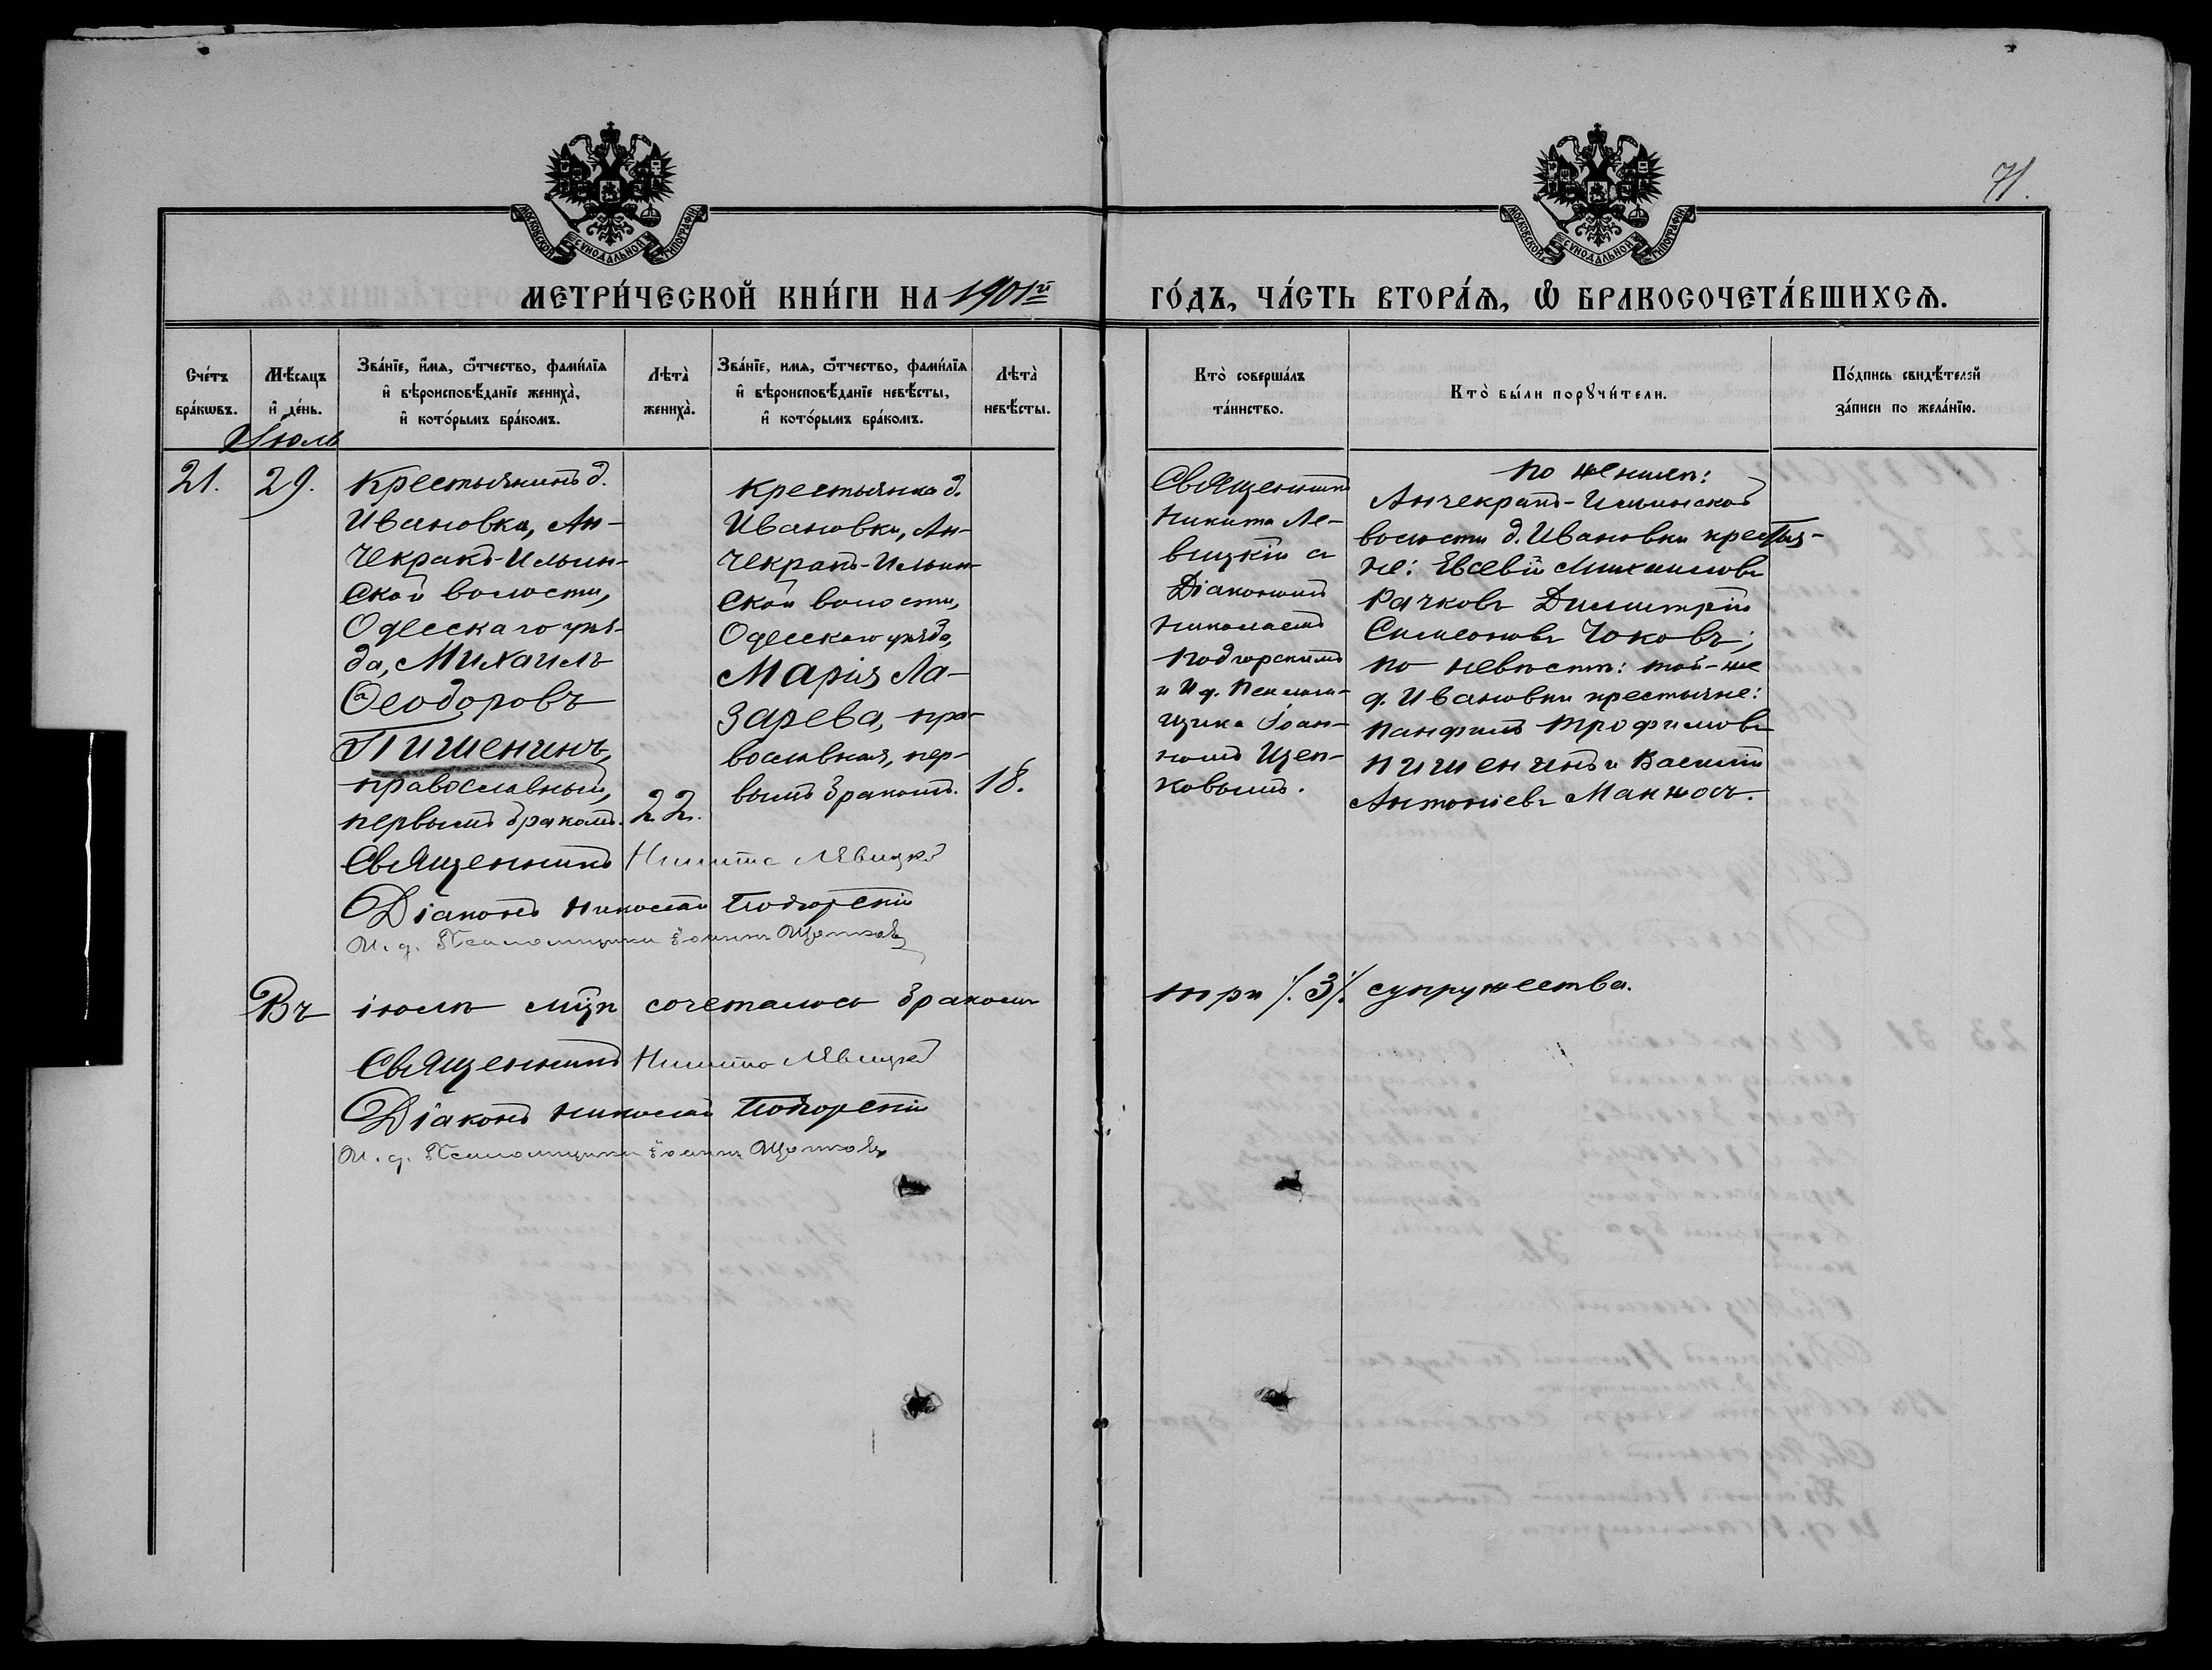 71.
МОСКОВСКОЙ СѴНОДАЛЬНОЙ ТИПОГРАФІИ
МОСКОВСКОЙ СѴНОДАЛЬНОЙ ТИПОГРАФІИ
МЕТРИ́ЧЕСКОЙ КНИ́ГИ НА 1901й
ГО́ДЪ, ЧА́СТЬ ВТОРА́Ѧ, Ѡ҆ БРАКОСОЧЕТА́ВШИХСѦ.
Сче́тъ
бра́кѡвъ.
Мѣ́сѧцъ
и҆ де́нь.
Зва́нїе, и҆́мѧ, ѻ҆́тчество, фами́лїѧ
и҆ вѣроисповѣ́данїе жениха̀,
и҆ кото́рымъ бра́комъ.
Лѣта̀
жениха̀.
Зва́нїе, имѧ, ѻ҆́тчество, фами́лїѧ
и҆ вѣроисповѣ́данїе невѣ́сты,
и҆ кото́рымъ бра́комъ.
Лѣта̀
невѣ́сты.
Кто̀ соверша́лъ
та́инство.
Кто̀ бы́ли порꙋчи́тели.
По́дпись свидѣ́телей
за́писи по жела́нїю.
Июль
21.
29.
Крестьянинъ д.
Ивановки, Ан-
чекракъ-Ильин-
ской волости,
Одесскаго уѣз-
да, Михаилъ
Ѳеодоровъ
Пишенинъ,
православный,
первымъ бракомъ.
22.
Крестьянка д.
Ивановки, Ан-
чекракъ-Ильин-
ской волости,
Одесскаго уѣзда,
Марія Ла-
зарева, пра-
вославная, пер-
вымъ бракомъ.
18.
Священникъ
Никита Ле-
вицкій съ
Діакономъ
Николаемъ
Подгорскимъ
и И.д. Псалом-
щика Іоан-
номъ Щеп-
ковымъ.
По женихѣ:
Анчекракъ-Ильинской
волости д. Ивановки крестья-
не: Евсевій Михаиловъ
Рачковъ Димитрій
Симеоновъ Чоковъ;
по невѣстѣ: той-же
д. Ивановки крестьяне:
Панфилъ Трофимовъ
Пишенинъ и Василій
Антоніевъ Манжосъ.
Священникъ Никита Левицкій
Діаконъ Николай Подгорскій
И. д. Псаломщика Іоаннъ Щепковъ
Въ іюлѣ мцѣ сочеталось бракомъ три /. 3/. супружества.
Священникъ Никита Левицкій
Діаконъ Николай Подгорскій
И. д. Псаломщика Іоаннъ Щепковъ